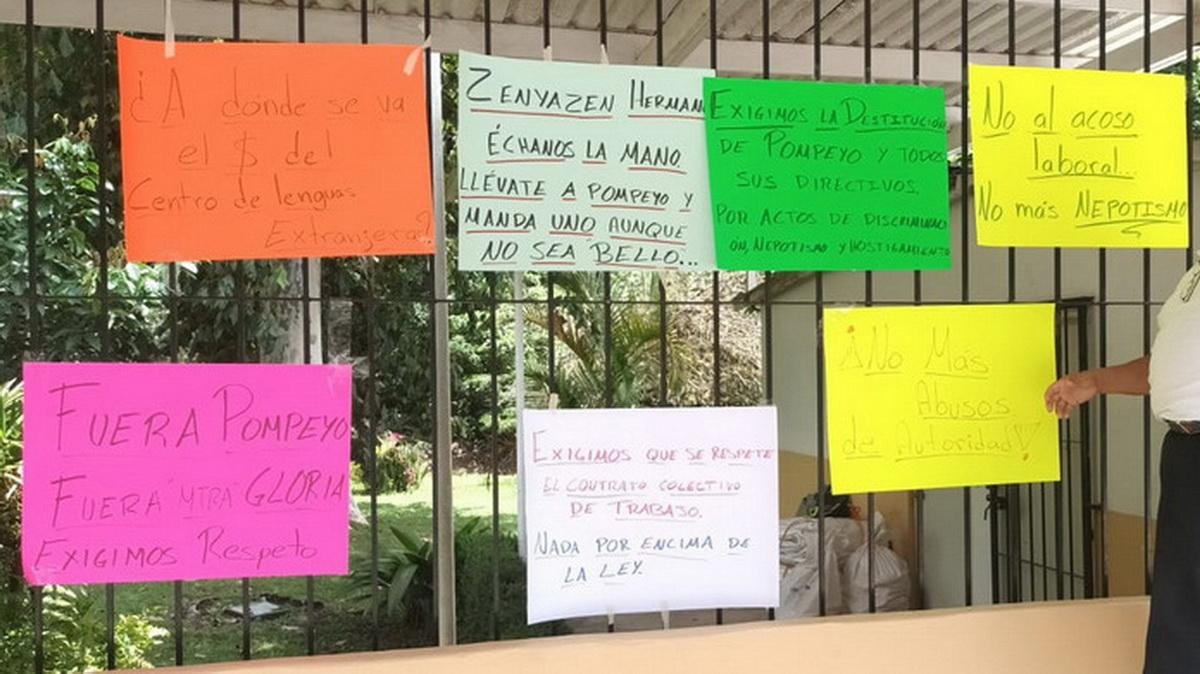 ¿A dónde se va
el $ del
Centro de lenguas
Extranjeras?
ZENYAZEN HERMAN
ÉCHANOS LA MANO
LLÉVATE A POMPEYO Y
MANDA UNO AUNQUE
NO SEA BELLO...
EXIGIMOS LA DESTITUCIÓN
DE POMPEYO Y TODOS
SUS DIRECTIVOS.
POR ACTOS DE DISCRIMINACI
ÓN, NEPOTISMO Y HOSTIGAMIENTO
No al acoso
laboral...
No más NEPOTISMO
FUERA POMPEYO
FUERA "MTRA" GLORIA
EXIGIMOS Respeto
EXIGIMOS QUE SE RESPETE
EL CONTRATO COLECTIVO
DE TRABAJO.
NADA POR ENCIMA DE
LA LEY.
¡No Más
Abusos
de Autoridad!